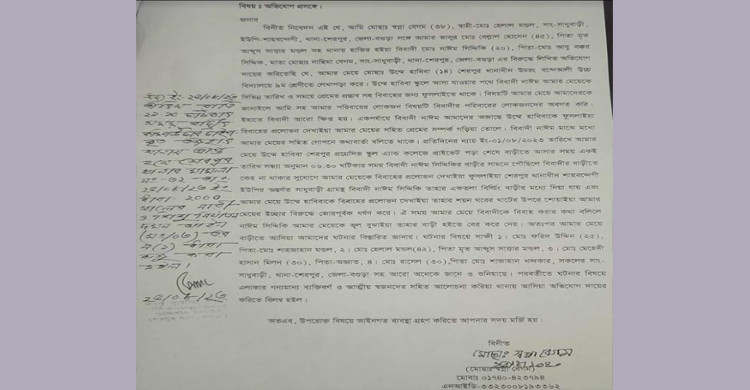 বিষয়ঃ অভিযোগ প্রসঙ্গে।
জনাব
বিনীত নিবেদন এই যে, আমি মোছাঃ স্বপ্না বেগম (৩৮), স্বামী-মোঃ হেলাল মন্ডল, সাং-সাধুবাড়ী,
ইউপি-শাহবন্দেগী, থানা-শেরপুর, জেলা-বগুড়া সঙ্গে আমার ভাসুর মোঃ বেল্লাল হোসেন (৪৫), পিতা মৃত
আব্দুস সাত্তার মন্ডল সহ থানায় হাজির হইয়া বিবাদী মোঃ নাঈম সিদ্দিকি (২০), পিতা-মোঃ আবু বক্কর
সিদ্দিক, মাতা মোছাঃ নাছিমা বেগম, সাং-সাধুবাড়ী, থানা-শেরপুর, জেলা-বগুড়া এর বিরুদ্ধে লিখিত অভিযোগ
দায়ের করিতেছি যে, আমার মেয়ে মোছাঃ উম্মে হাবিবা (১৪) শেরপুর থানাধীন উচরং বন্দেআলী উচ্চ
বিদ্যালয়ে ৯ম শ্রেণীতে লেখাপড়া করে। উম্মে হাবিবা স্কুলে আসা যাওয়ার পথে বিবাদী নাঈম আমার মেয়েকে
বিভিন্ন তারিখ ও সময়ে প্রেমের প্রস্তাব সহ বিবাহের জন্য ফুসলাইতে থাকে। বিষয়টি আমার মেয়ে আমাদেরকে
জানাইলে আমি সহ আমার পরিবারের লোকজন বিষয়টি বিবাদীর পরিবারের লোকজনদের অবগত করি।
ইহাতে বিবাদী আরো ক্ষিপ্ত হয়। একপর্যায়ে বিবাদী নাঈম আমাদের অজান্তে উম্মে হাবিবাকে ফুসলাইয়া
বিবাহের প্রলোভন দেখাইয়া আমার মেয়ের সহিত প্রেমের সম্পর্ক গড়িয়া তোলে। বিবাদী নাঈম মাঝে মধ্যে
আমার মেয়ের সহিত গোপনে কথাবার্তা বলিতে থাকে। প্রতিদিনের ন্যায় ইং-০১/০৮/২০২৩ তারিখে আমার
মেয়ে উম্মে হাবিবা শেরপুর প্রগ্রেসিভ স্কুল এ্যান্ড কলেজে প্রাইভেট পড়া শেষে বাড়ীতে আসার সময় একই
তারিখ সন্ধ্যা অনুমান ০৬.৩০ ঘটিকার সময় বিবাদী নাঈম সিদ্দিকির বাড়ীর সামনে পৌছিলে বিবাদীর বাড়ীতে
কেহ না থাকার সুযোগে আমার মেয়েকে বিবাহের প্রলোভন দেখাইয়া ফুসলাইয়া শেরপুর থানাধীন শাহবন্দেগী
ইউপির অন্তর্গত সাধুবাড়ী গ্রামস্থ বিবাদী নাঈম সিদ্দিকি তাহার একতলা বিল্ডিং বাড়ীর মধ্যে নিয়া যায় এবং
আমার মেয়ে উম্মে হাবিবাকে বিবাহের প্রলোভন দেখাইয়া তাহার শয়ন ঘরের খাটের উপরে শোয়াইয়া আমার
মেয়ের ইচ্ছার বিরুদ্ধে জোরপূর্বক ধর্ষণ করে। ঐ সময় আমার মেয়ে বিবাদীকে বিবাহ করার কথা বলিলে
নাঈম সিদ্দিকি আমার মেয়েকে ভুল বুঝাইয়া তাহার বাড়ী হইতে বের করে দেয়। অতঃপর আমার মেয়ে
বাড়ীতে আসিয়া আমাদের ঘটনার বিস্তারিত জানায়। ঘটনার বিষয়ে সাক্ষী ১। মোঃ ফরিদ উদ্দিন (২৫),
পিতা-মোঃ শাহজাহান মন্ডল, ২। মোঃ হেলাল মন্ডল(৪২), পিতা মৃত আব্দুস সাত্তার মন্ডল, ৩। মোঃ মেহেদী
হাসান মিলন (৩০), পিতা-অজ্ঞাত, ৪। মোঃ রাসেল (৩০),পিতা মোঃ শাজাহান খন্দকার, সকলের সাং-
সাধুবাড়ী, থানা-শেরপুর, জেলা-বগুড়া সহ আরো অনেকে জানে ও শুনিয়াছে। পরবর্তীতে ঘটনার বিষয়ে
এলাকার গন্যমান্য ব্যক্তিবর্গ ও আত্মীয় স্বজনদের সহিত আলোচনা করিয়া থানায় আসিয়া অভিযোগ দায়ের
করিতে বিলম্ব হইল।
অতএব, উপরোক্ত বিষয়ে আইনগত ব্যবস্থা গ্রহণ করিতে আপনার সদয় মর্জি হয়।
বিনীত
মোছাঃ স্বপ্না বেগম
(মোছাঃ স্বপ্না বেগম)
মোবাঃ ০১৭৪০-৪২৩৭৯৪
এনআইডি-৩৩২৩০০৮১৯৩৩৬২